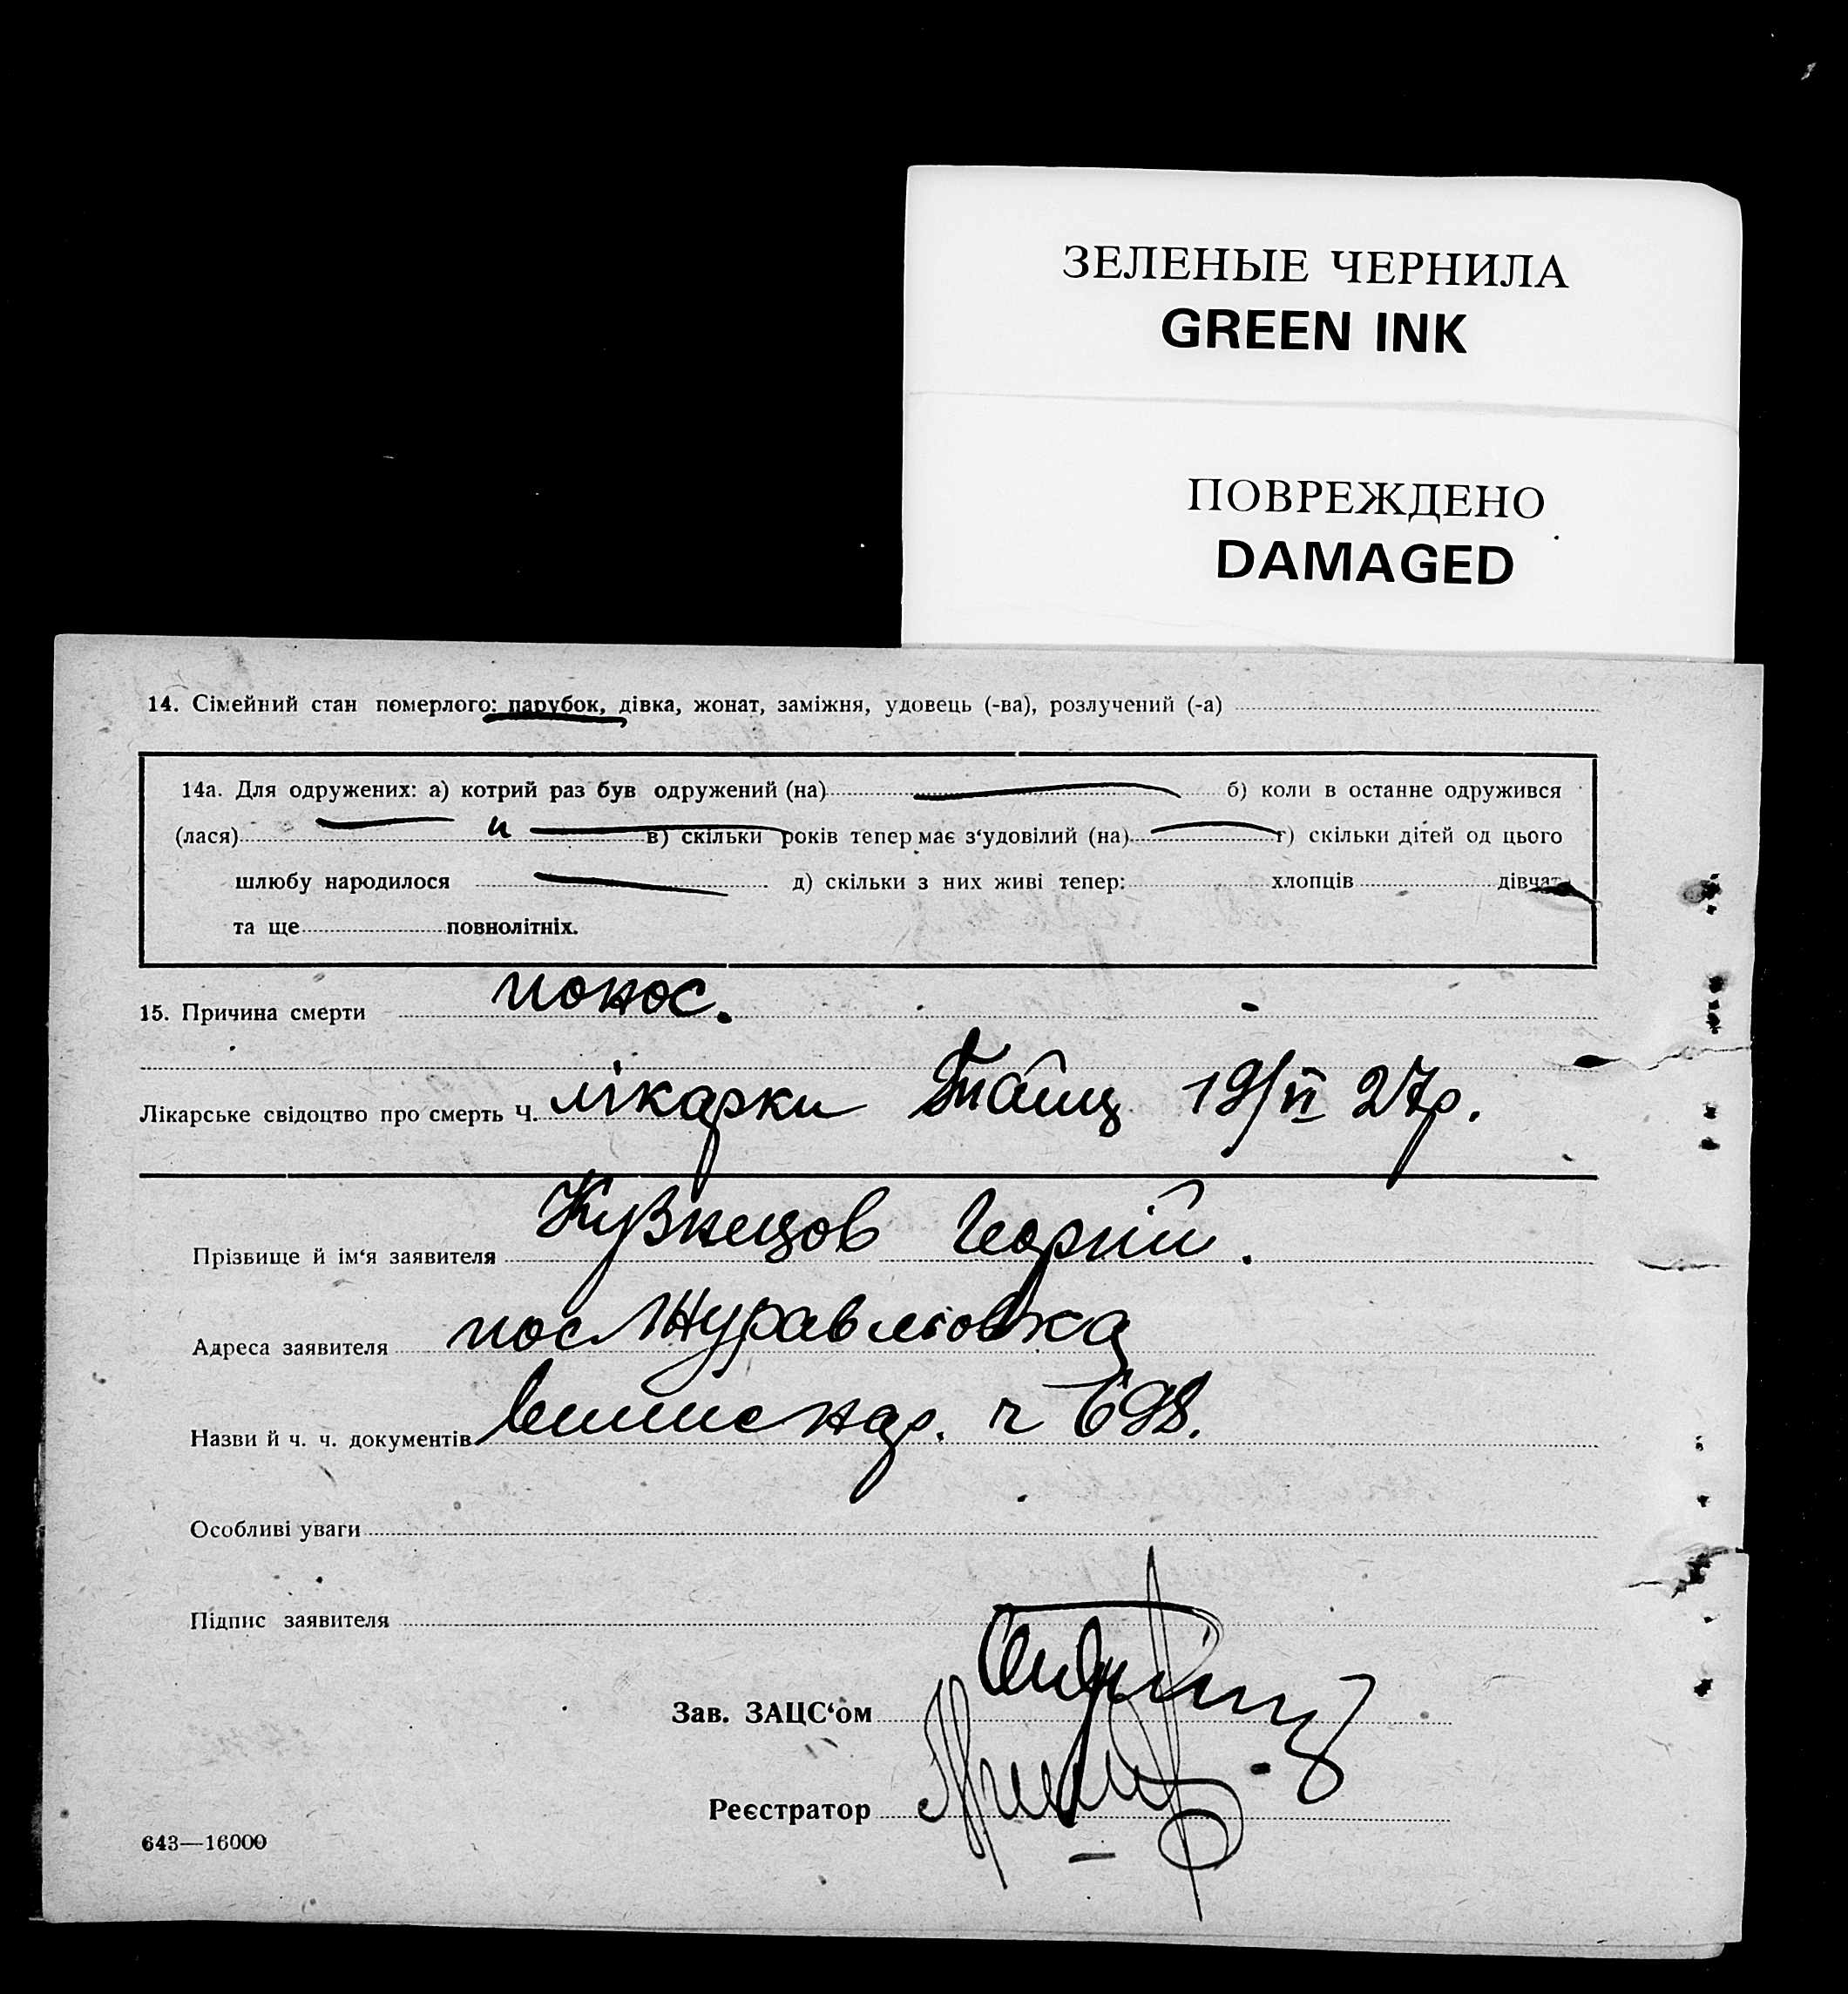 ЗЕЛЕНЫЕ ЧЕРНИЛА
GREEN INK
ПОВРЕЖДЕНО
DAMAGED
14. Сімейний стан померлого: парубок, дівка, жонат, заміжня, удовець (-ва), розлучений (-а)
14а. Для одружених: а) котрий раз був одружений (на) б) коли в останне одружився
(лася) в) скільки років тепер має з‘удовілий (на) г) скільки дітей од цього
шлюбу народилося д) скільки з них живі тепер: хлопців дівчат
та ще повнолітніх.
15. Причина смерти понос.
Лікарське свідоцтво про смерть Ч. лікарки Тайц 19/VI 27р.
Прізвище й ім‘я заявителя Кузнецов Георгій.
Адреса заявителя пос Журавльовка
Назви й ч. ч. документів випис нар. ч 698.
Особливі уваги
Підпис заявителя
Зав. ЗАЦС‘ом
Реєстратор
643—16000